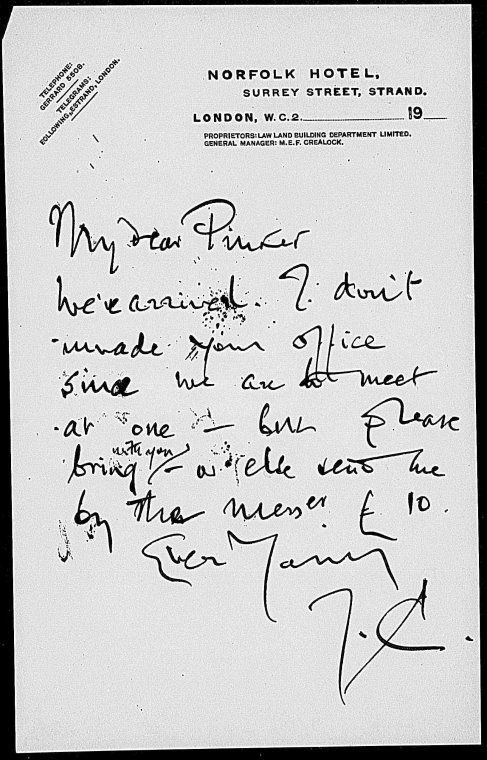 TELEPHONE:
GERRARD 5508.
TELEGRAMS:
FOLLOWING, ESTRAND, LONDON.
NORFOLK HOTEL,
SURREY STREET, STRAND.
LONDON, W.C.2. 19
PROPRIETORS: LAW LAND BUILDING DEPARTMENT LIMITED.
GENERAL MANAGER: M.E.F. CREALOCK.
My dear Pinker
We've arrived. I don't
invade your office
since we are to meet
at one – but please
bring with you – or else send me
by the messer £ 10.
Ever Yours
J.C.